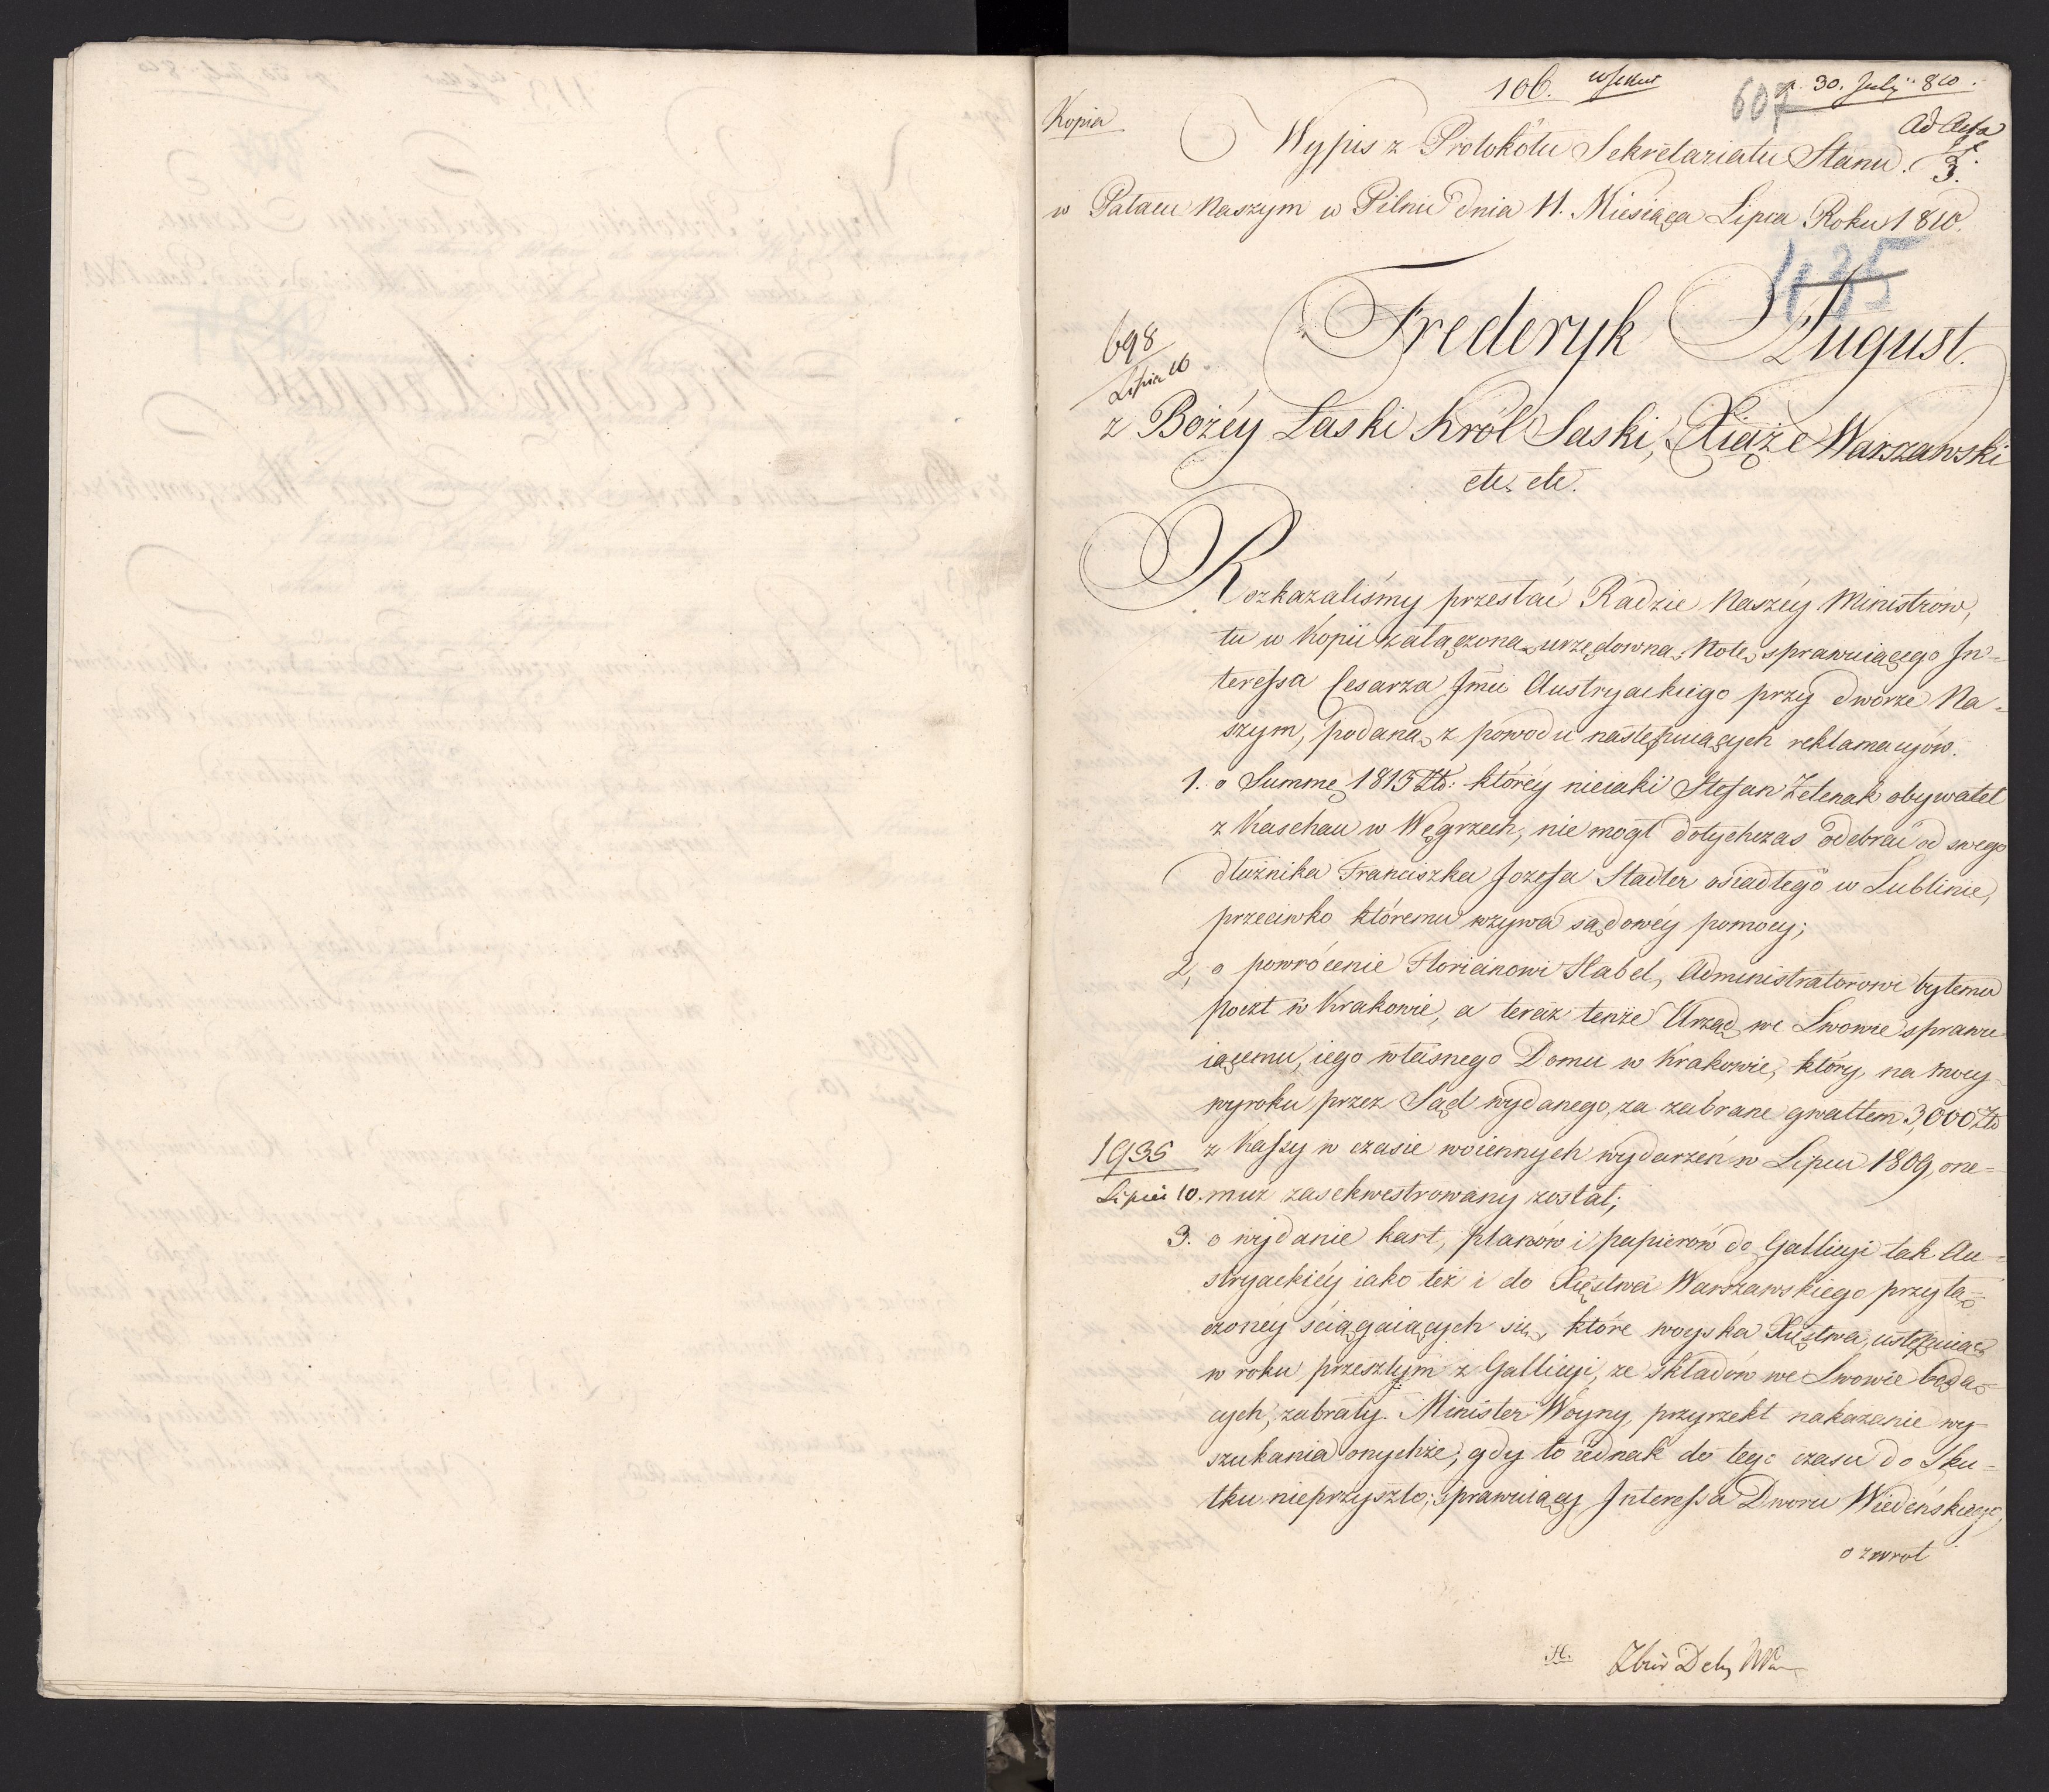 106.
607
30. July 810.
Kopia
Ad Acta
Wypis z Protokółu Sekretariatu Stanu.
3.
w Pałacu Naszym w Pilnic dnia 11. Miesiąca Lipca Roku 1810.
Frederyk August.
698
Lipca 10
z Bożéy Łaski Król Saski, Xiąże Warszawski
etc. etc.
Rozkazaliśmy przesłać Radzie Naszéy Ministrow,
tu w Kopii załączoną urzędowną Notę sprawuiącego In=
teressa Cesarza Jmci Austryackiego przy dworze Na=
szym, podaną z powodu następuiących reklamacyów.
1. o Summę 1815 Złł: któréy nieiaki Stefan Zelenak obywatel
z Kaschau w Węgrzech, nie mogł dotychczas odebrać od swego
dłużnika Franciszka Jozefa Stadler osiadłego w Lublinie,
przeciwko któremu wzywa sądowéy pomocy;
2, o powrócenie Florianowi Habel, Administratorowi byłemu
poczt w Krakowie, a teraz tenże Urząd we Lwowie sprawu
iącemu, iego własnego Domu w Krakowie, który, na mocy
wyroku przez Sąd wydanego, za zabrane gwałtem 3,000 Zł
z Kassy w czasie woiennych wydarzeń w Lipcu 1809, one=
1935
Lipca 10.
muż zasekwestrowany został;
3. o wydanie kart, planów i papierów do Gallicyi tak Au=
stryackiéy iako też i do Xięstwa Warszawskiego przyłą=
czonéy ściągaiących się, które woyska Xięstwa, ustępuiąc
w roku przeszłym z Gallicyi, ze składów we Lwowie będą=
cych, zabrały. Minister Woyny, przyrzekł nakazanie wy=
szukania onychże, gdy to iednak do tego czasu do Sku=
tku nieprzyszło; sprawuiący Interessa Dworu Wiedeńskiego,
o zwrot